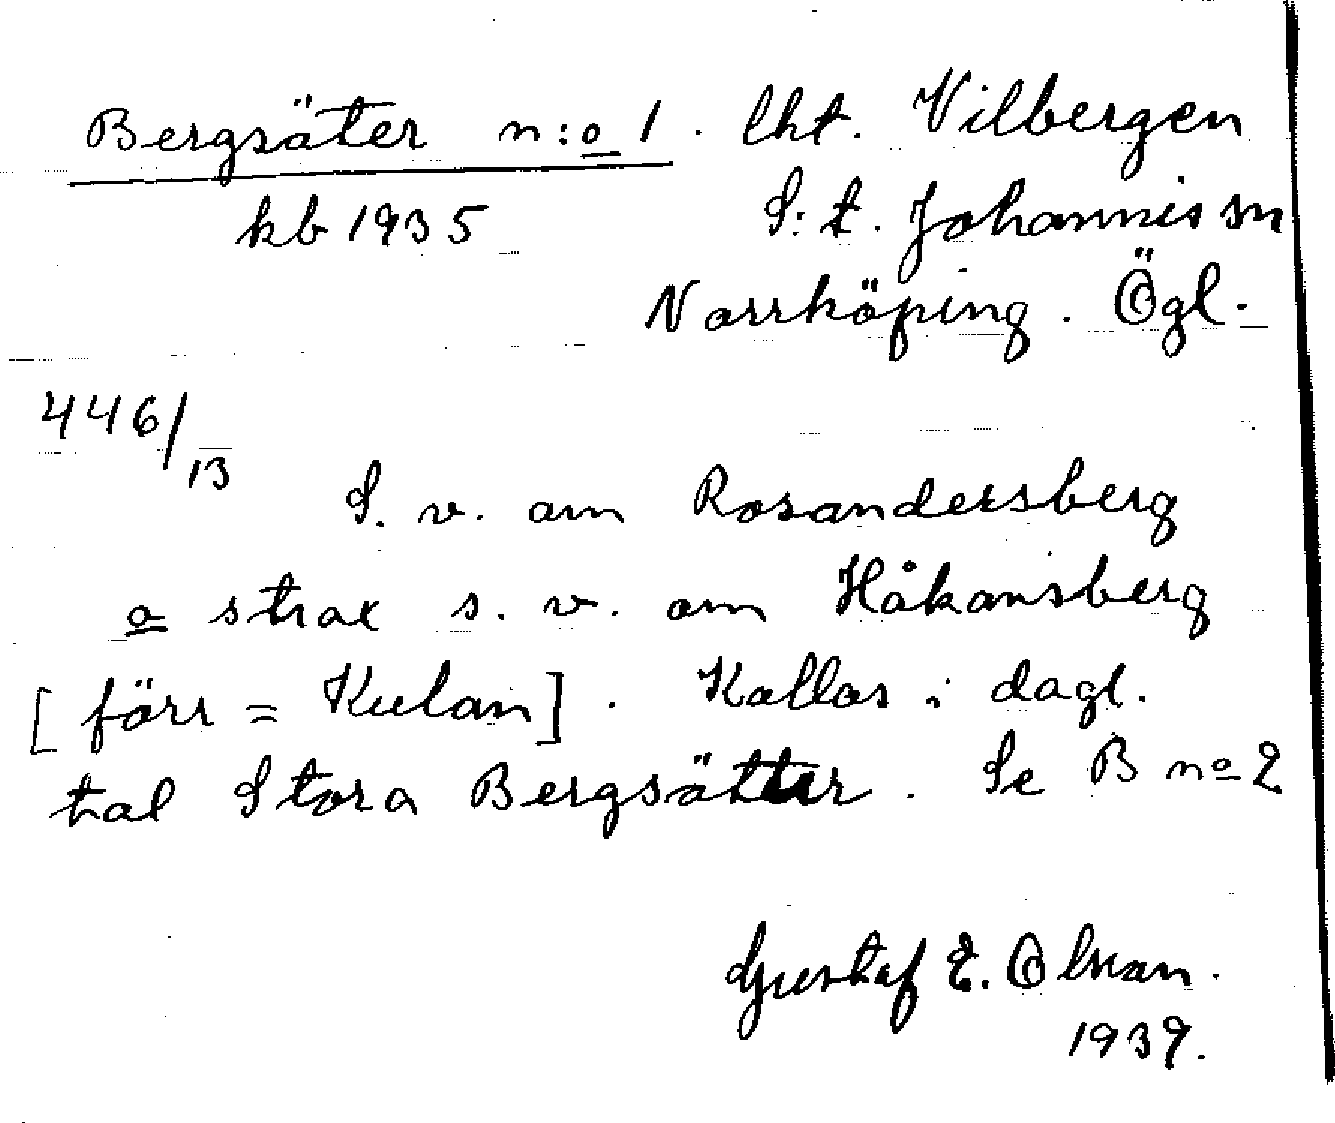 Bergsäter n:o 1. lht. Vilbergen
kb 1935 S:t. Johannis sn
Norrköping. Ögl.
446/13
S. v. om Rosandersberg
o strax s. v. om Håkansberg
[förr = Kulan]. Kallas i dagl.
tal Stora Bergsätter. Se B no 2
Gustaf E. Olson.
1939.